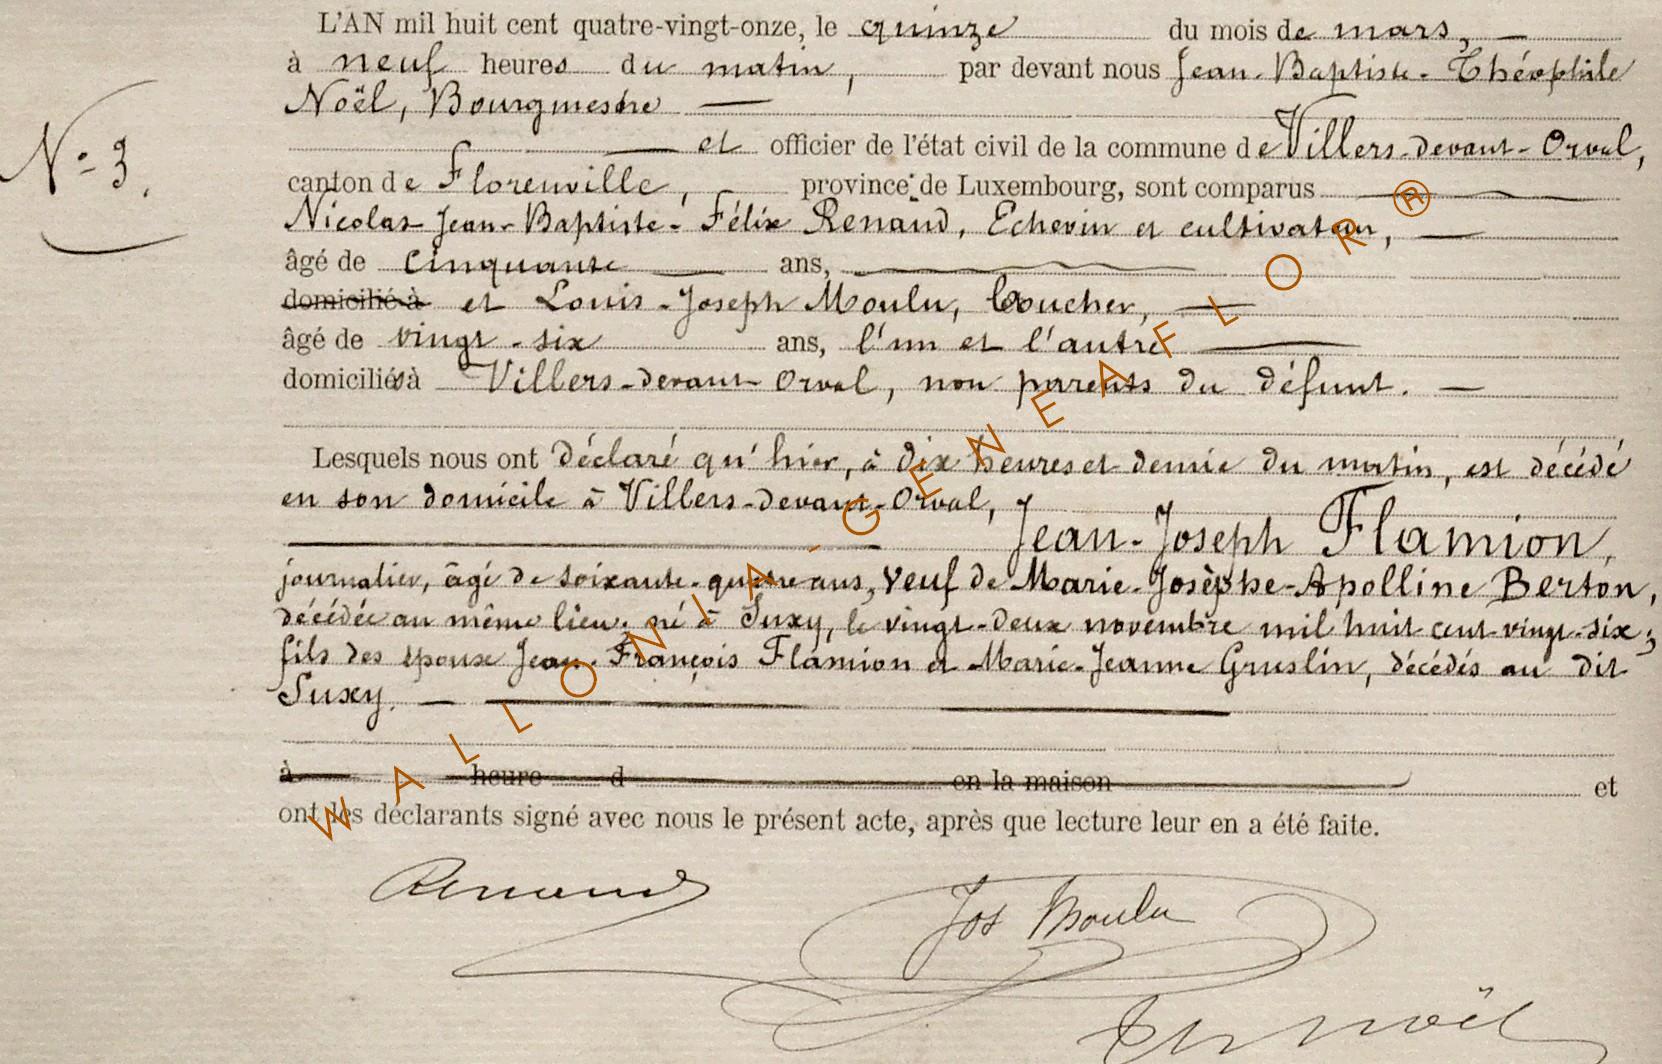 L'AN mil huit cent quatre-vingt-onze, le quinze du mois de mars, —
à neuf heures du matin, par devant nous Jean-Baptiste-Théophile
Noël, Bourgmestre —
— et officier de l'état civil de la commune de Villers-devant-Orval,
N° 3.
canton de Florenville, province de Luxembourg, sont comparus
Nicolas-Jean-Baptiste-Félix Renaud, Echevin et cultivateur, —
âgé de cinquante — ans,
domicilié à et Louis-Joseph Moulu, boucher, —
âgé de vingt-six ans, l'un et l'autre —
domiciliés à Villers-devant-Orval, non parents du défunt. —
Lesquels nous ont déclaré qu'hier, à dix heures et demie du matin, est décédé
en son domicile à Villers-devant-Orval,
— Jean-Joseph Flamion,
journalier, âgé de soixante-quatre ans, veuf de Marie-Josèphe-Apolline Berton,
décédée au même lieu; né à Suxy, le vingt-deux novembre mil huit cent vingt-six;
fils des époux Jean-François Flamion et Marie-Jeanne Gruslin, décédés au dit
Suxy. —
à heure d en la maison et
ont les déclarants signé avec nous le présent acte, après que lecture leur en a été faite.
Renaud
Jos Moulu
Th Noël
WALLONIA-GENEAFLOR®